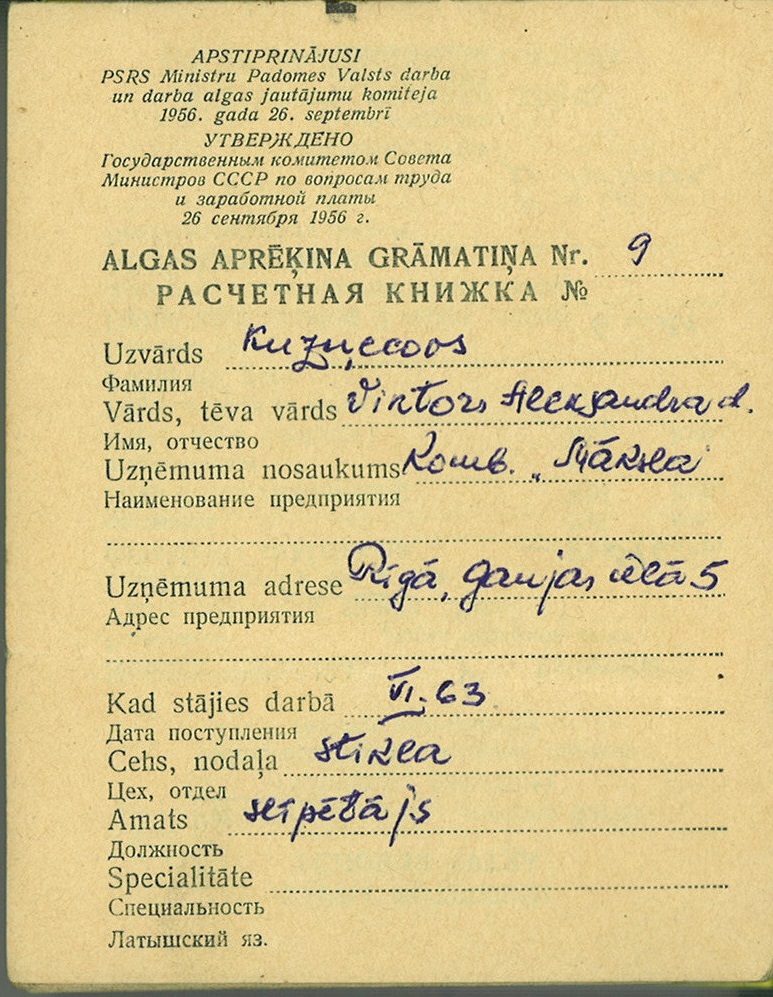 APSTIPRINĀJUSI
PSRS Ministru Padomes Valsts darba
un darba algas jautājumu komiteja
1956. gada 26. septembrī
УТВЕРЖДЕНО
Государственным комитетом Совета
Министров СССР по вопросам труда
и заработной платы
26 сентября 1956 г.
ALGAS APRĒĶINA GRĀMATIŅA Nr. 9
РАСЧЕТНАЯ КНИЖКА №
Uzvārds Kuzņecovs
Фамилия
Vārds, tēva vārds Viktors Aleksandra d.
Имя, отчество
Uzņēmuma nosaukums Komb. „Māksla"
Наименование предприятия
Uzņēmuma adrese Rīgā, Gaujas ielā 5
Адрес предприятия
Kad stājies darbā VI. 63
Дата поступления
Cehs, nodaļa stikla
Цех, отдел
Amats slīpētājs
Должность
Specialitāte
Специальность
Латышский яз.